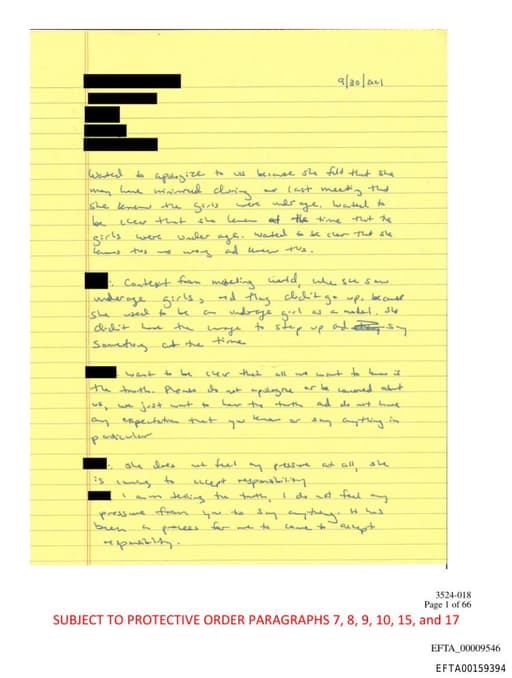 9/30/2021
Wanted to apologize to us because she felt that she
may have minimized during our last meeting that
she knew the girls were underage. Wanted to
be clear that she knew at the time that the
girls were under age. Wanted to be clear that she
knows this was wrong and knew this.
. Context from modeling world, where she saw
underage girls, and they didn't go up, because
she used to be an underage girl as a model. She
didn't have the courage to step up and say
something at the time
want to be clear that all we want to hear is
the truth. Please do not apologize or be concerned about
us, we just want to hear the truth and do not have
any expectation that you know or say anything in
particular
. She does not feel any pressure at all, she
is coming to accept responsibility
I am telling the truth, I do not feel any
pressure from you to say anything. It has
been a process for me to come to accept
responsibility.
3524-018
Page 1 of 66
SUBJECT TO PROTECTIVE ORDER PARAGRAPHS 7, 8, 9, 10, 15, and 17
EFTA_00009546
EFTA00159394